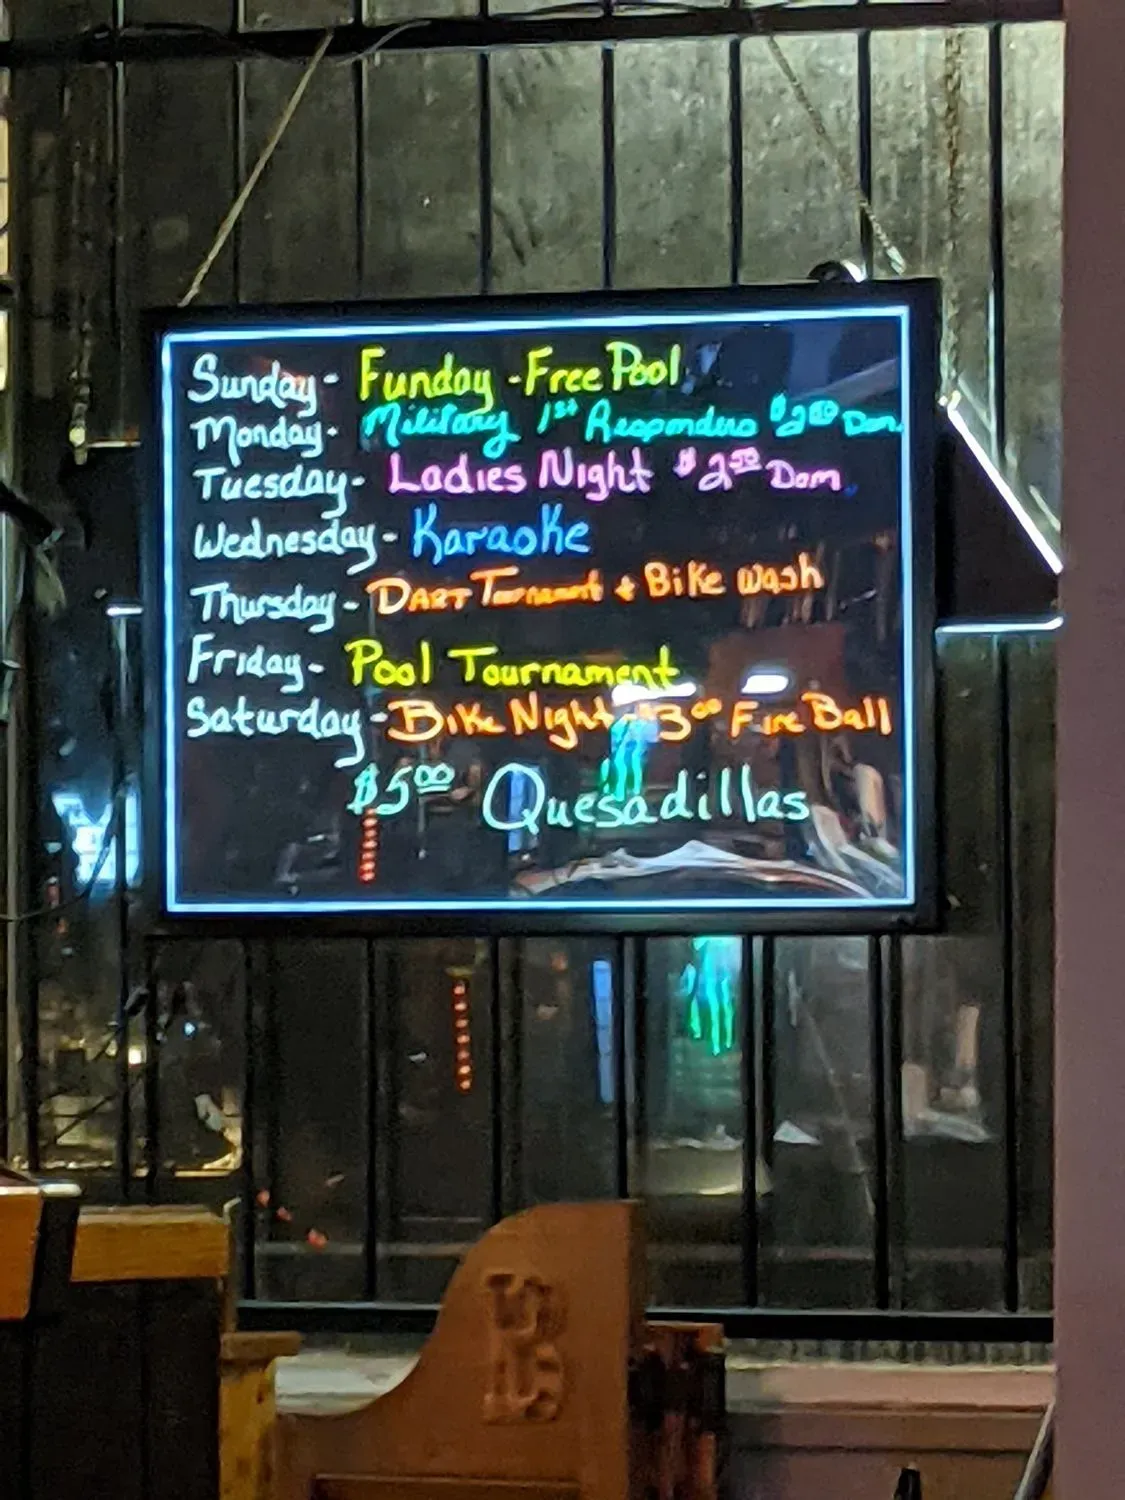 Sunday - Funday - Free Pool
Monday - Military 1st Responders $2.00 Dom.
Tuesday - Ladies Night $2.00 Dom
Wednesday - Karaoke
Thursday - Dart Tournament + Bike Wash
Friday - Pool Tournament
Saturday - Bike Night - $3.00 Fire Ball
$5.00 Quesadillas